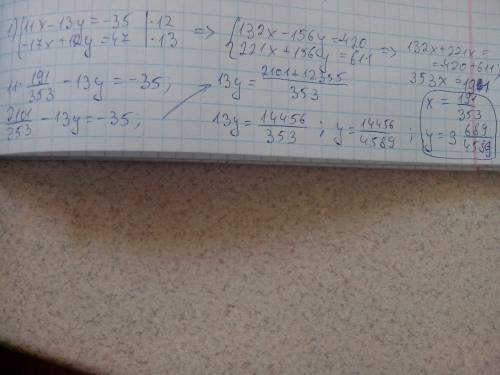 1) { 11x-13y=-35 | ·12
-17x+12y=47 | ·13
=> { 132x-156y=-420
221x+156y=611
=> 132x+221x=
=-420+611
353x=191
x=191/353
11·191/353-13y=-35;
2101/353-13y=-35,
13y=2101+12355/353
13y=14456/353; y=14456/4589; y=3 689/4589